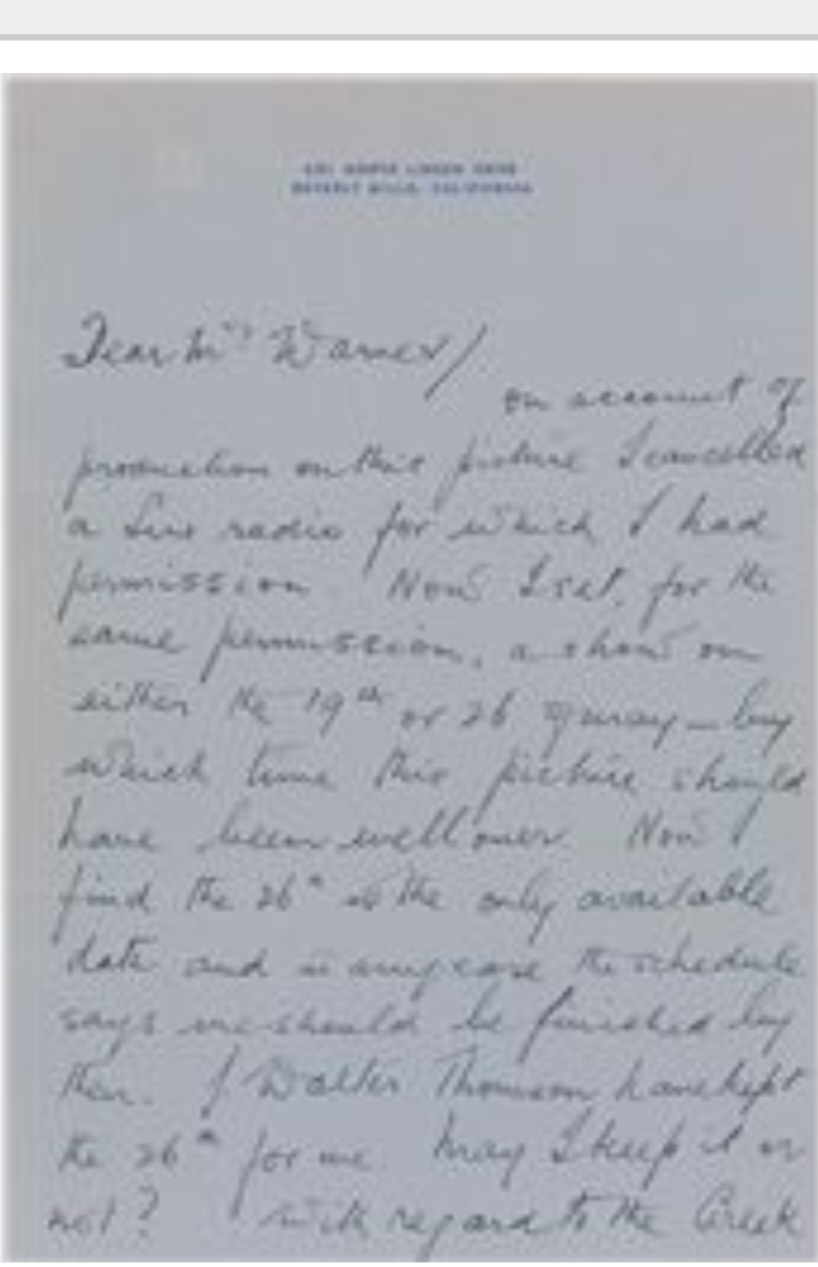 NORTH LINDEN DRIVE
BEVERLY HILLS, CALIFORNIA
Dear Mr Warner/
on account of
production on this picture I cancelled
a radio for which I had
permission. Now I set, for the
same permission, a show on
either the 19th or 26 – by
which time this picture should
have been well over Now I
find the 26th is the only available
date and in any case the schedule
says we should be finished by
then. J Walter Thomson have kept
the 26th for me May I keep it or
not? With regard to the Greek